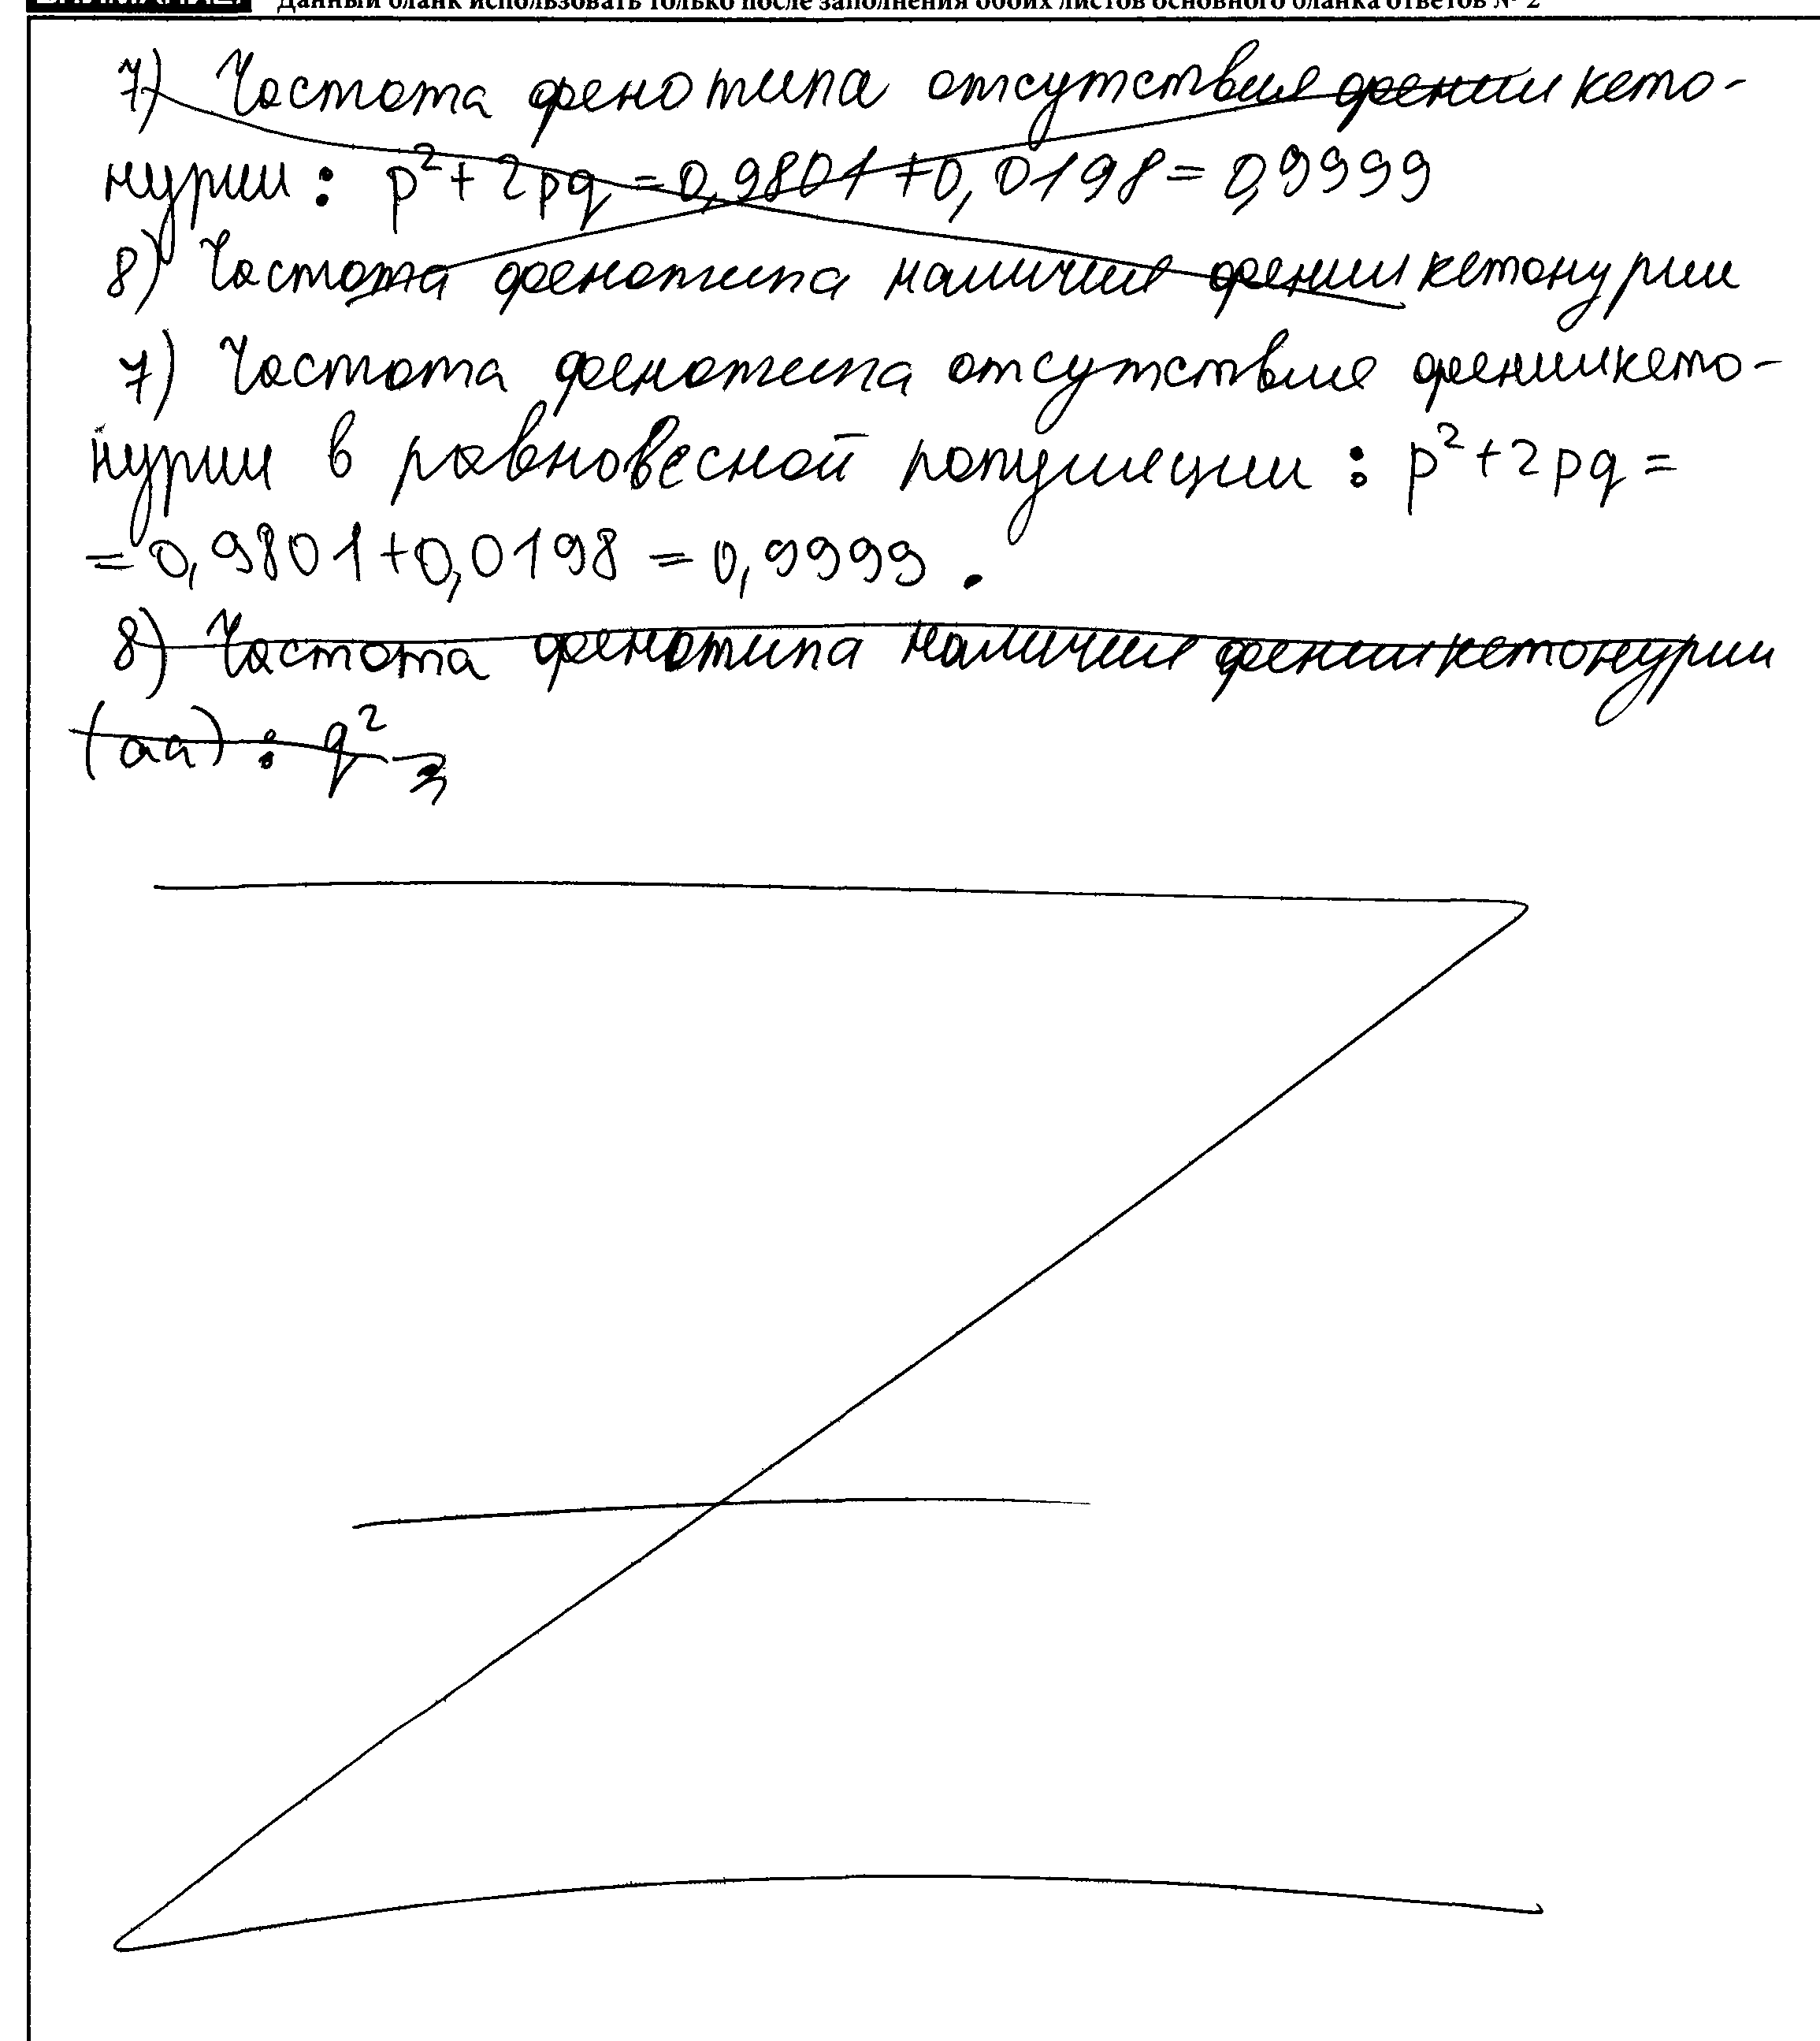 ВНИМАНИЕ! Данный бланк использовать только после заполнения обоих листов основного бланка ответов № 2
7) Частота фенотипа отсутствия фенилкето-
нурии: p²+2pq=0,9801+0,0198=0,9999
8) Частота фенотипа наличия фенилкетонурии
7) Частота фенотипа отсутствия фенилкето-
нурии в равновесной популяции: p²+2pq=
=0,9801+0,0198=0,9999.
8) Частота фенотипа наличия фенилкетонурии
(aa): q²